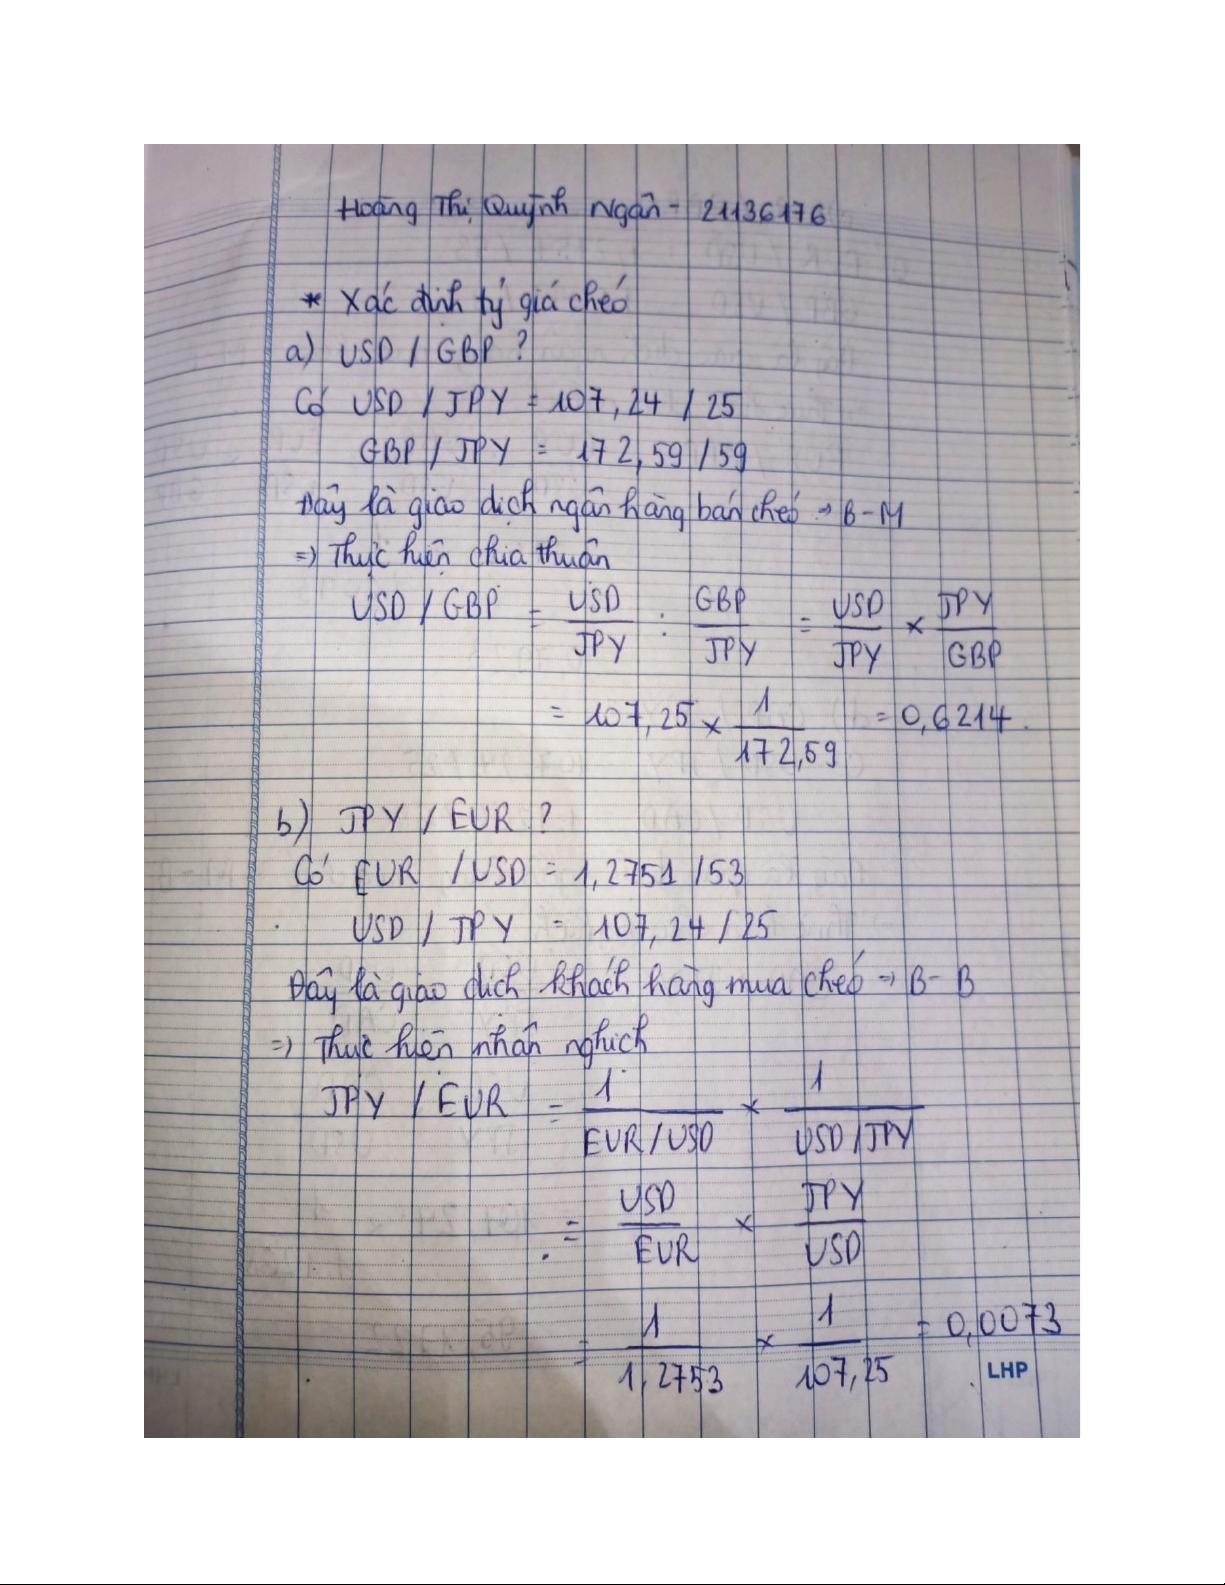 Hoàng Thị Quỳnh Ngân - 21136176
* Xác định tỷ giá chéo
a) USD / GBP ?
Có USD / JPY = 107,24 / 25
GBP / JPY = 172,59 / 59
Đây là giao dịch ngân hàng bán chéo → B-M
=> Thực hiện chia thuận
USD / GBP = USD/JPY : GBP/JPY = USD/JPY × JPY/GBP
= 107,25 × 1/172,59 = 0,6214.
b) JPY / EUR ?
Có EUR / USD = 1,2751 / 53
USD / JPY = 107,24 / 25
Đây là giao dịch khách hàng mua chéo → B-B
=> Thực hiện nhân nghịch
JPY / EUR = 1/EUR/USD × 1/USD/JPY
= USD/EUR × JPY/USD
= 1/1,2753 × 1/107,25 = 0,0073
LHP